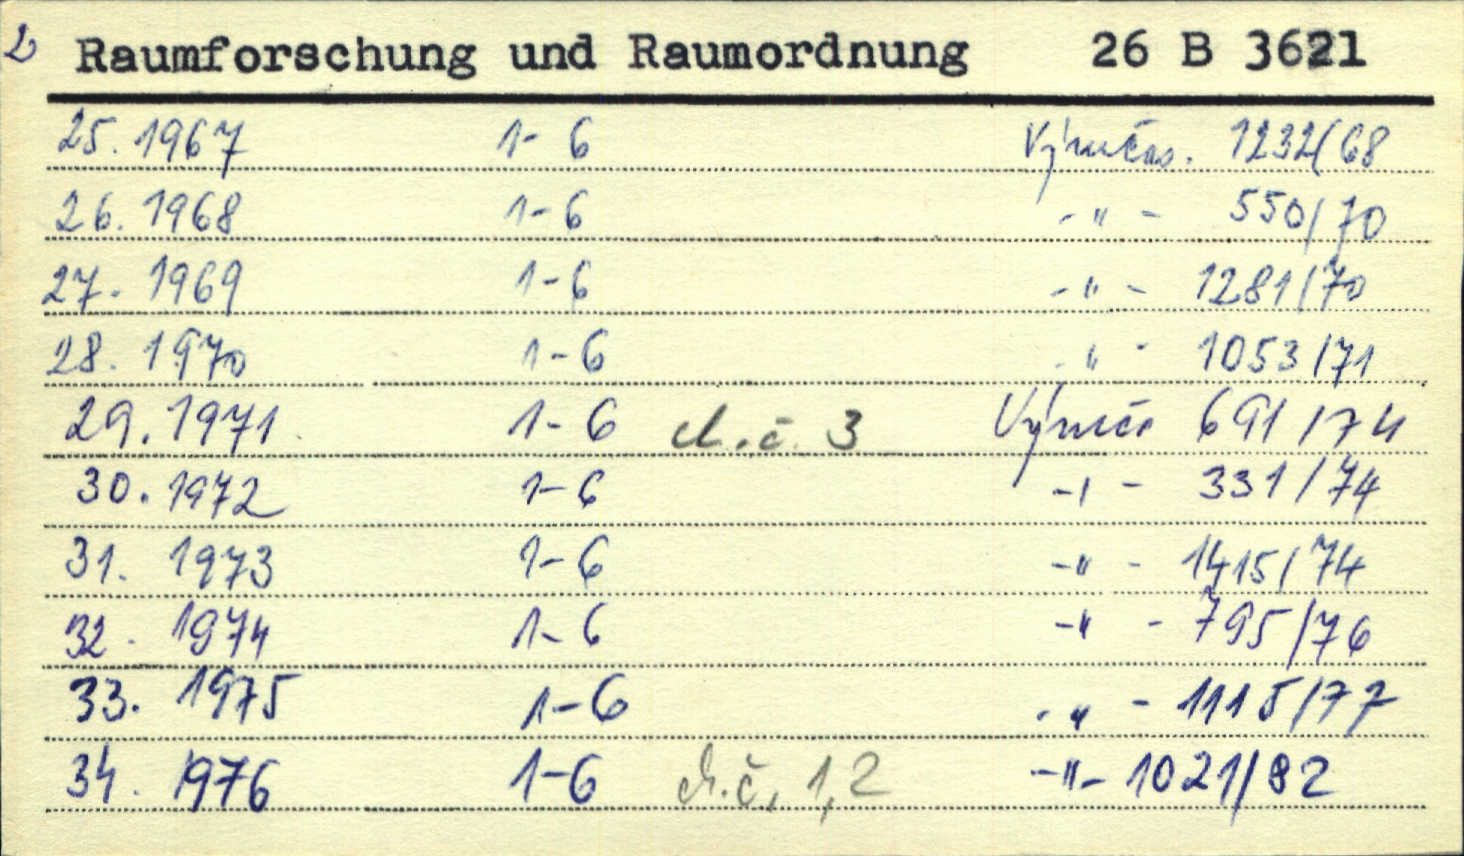 2 Raumforschung und Raumordnung 26 B 3621
25. 1967 1-6 Výměčas. 1232/68
26. 1968 1-6 -"- 550/70
27. 1969 1-6 -"- 1281/70
28. 1970 1-6 -"- 1053/71
29. 1971 1-6 ch.č. 3 691/74
30. 1972 1-6 -"- 331/74
31. 1973 1-6 -"- 1415/74
32. 1974 1-6 -"- 795/76
33. 1975 1-6 -"- 1115/77
34. 1976 1-6 ch.č. 1,2 -"- 1021/82